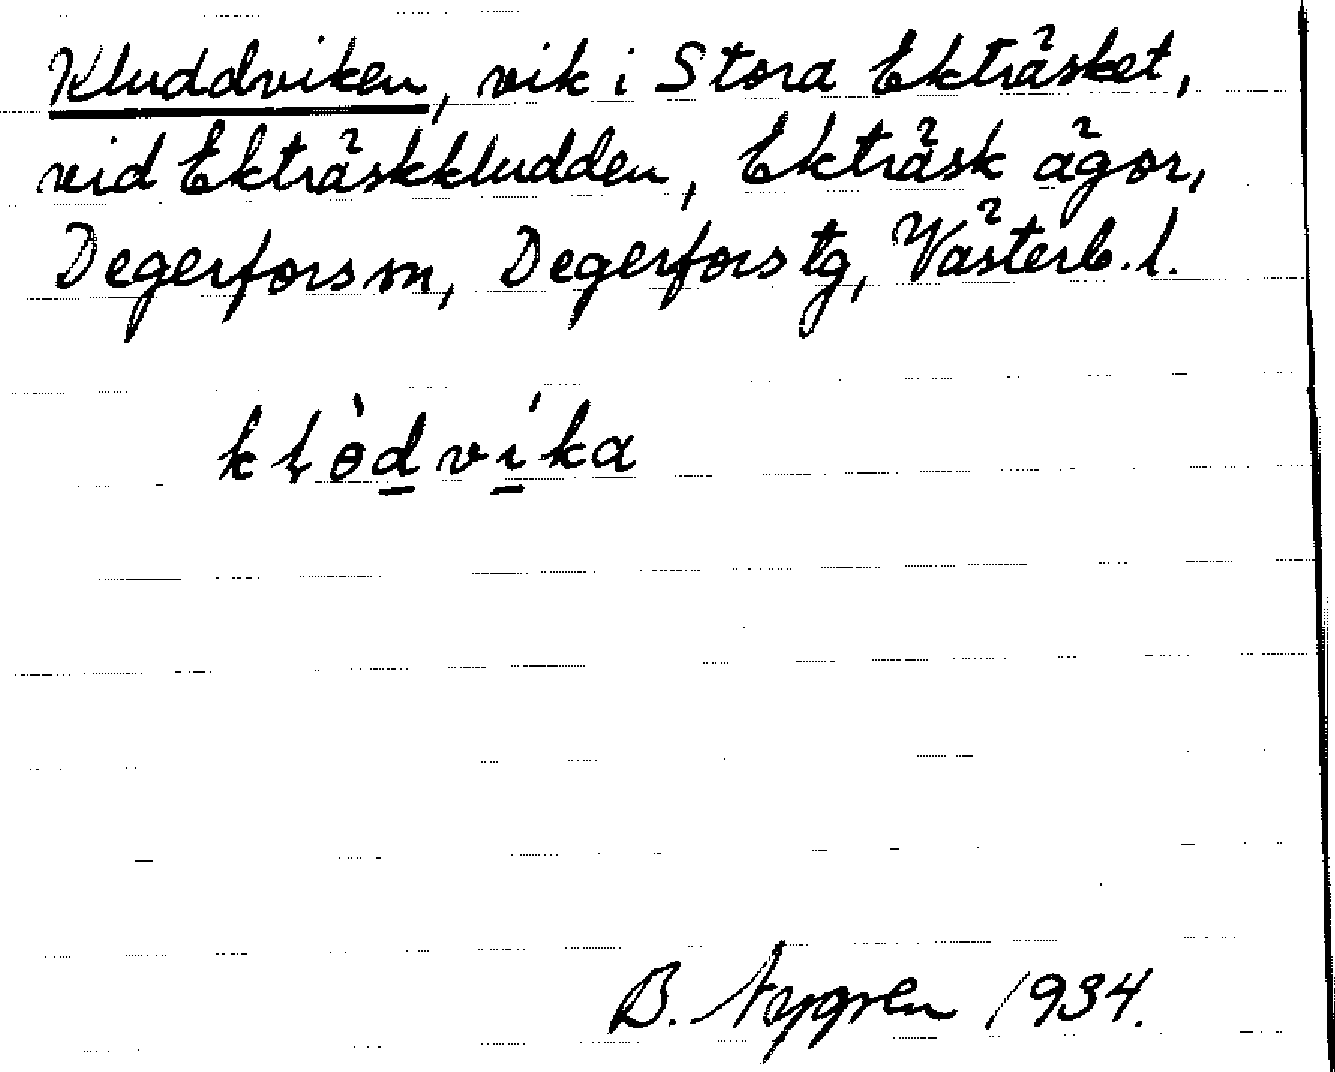 Kluddviken, vik i Stora Ekträsket,
vid Ekträskkludden, Ekträsk ägor,
Degerfors sn, Degerfors tg, Västerb. l.
kḷòd̲ví̲ka
B. Nygren 1934.